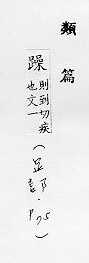 類篇
躁
則到切疾
也文一
(足部·P75)